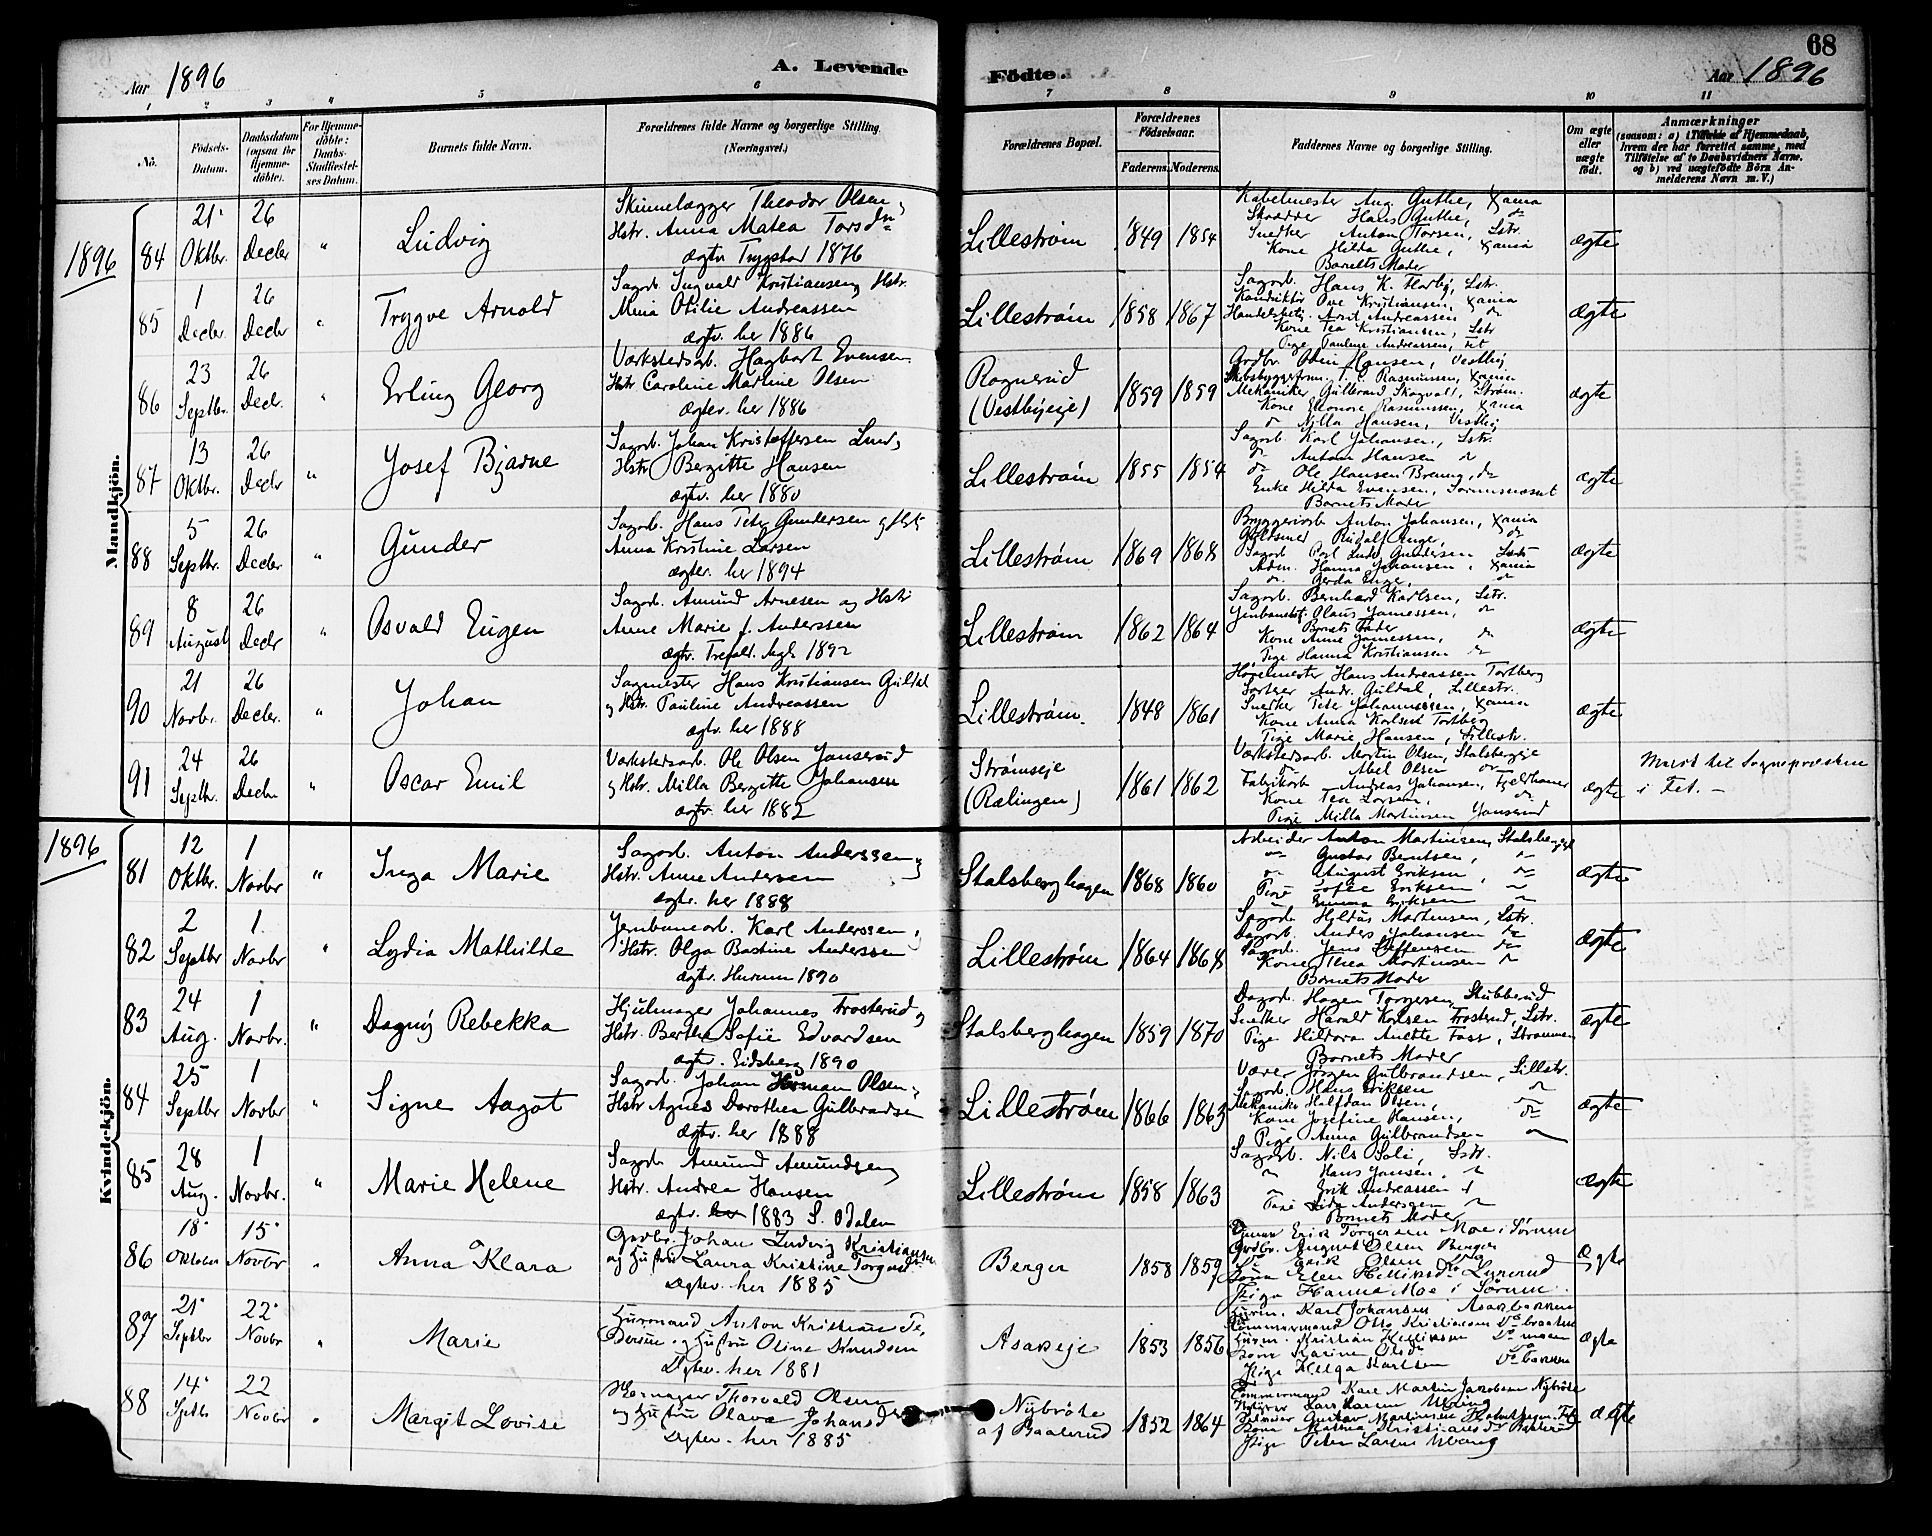 68
Aar 1896
A. Levende
Födte.
Aar 1896
1 2 3 4 5 6 7 8 9 10 11
No.
Födsels-Datum.
Daabsdatum (ogsaa for Hjemme-döbte).
For Hjemme-döbte: Daabs-Stadfæstelses Datum.
Barnets fulde Navn.
Forældrenes fulde Navne og borgerlige Stilling. (Næringsvei.)
Forældrenes Bopæl.
Forældrenes Födselsaar.
Faderens. Moderens.
Faddernes Navne og borgerlige Stilling.
Om ægte eller uægte födt.
Anmærkninger
(saasom: a) i Tilfælde af Hjemmedaab, hvem der har forrettet samme, med Tilföielse af to Daabsvidners Navne, og b) ved uægtefödte Börn Anmelderens Navn m. V.)
Mandkjön.
1896
84 21 Oktbr. 26 Decbr " Ludvig
Skinnelægger Theodor Olsen,
Hstr. Anna Matea Torsd
ægtv. Trygstad 1876
Lillestrøm 1849 1854
Kabelmester Aug. Guthe, Xania
Skrædder Hans Guthe, do
Snedker Anton Torsen, Lstr.
Kone Hilda Guthe, Xania
Barnets Moder
ægte
85 1 Decbr. 26 Decbr " Trygve Arnold
Sagarb. Ingvald Kristiansen, Hstr.
Mina Otilie Andreassen
ægtv. her 1886
Lillestrøm 1858 1867
Sagarb. Hans K. Lstr.
Konduktør Ove Kristiansen, Xania
Arnt Andreassen do
Kone Tea Kristiansen, Lstr
Pige Pauline Andreassen, Fet
ægte
86 23 Septbr. 26 Decbr. " Erling Georg
Værkstedsarb. Hagbart Evensen
Hstr Caroline Martine Olsen
ægtev. her 1886
Rognerud
(Vestbyeje)
1859 1859
Grdbr. Hansen, Vestby
Rasmussen, Xania
Mekaniker Gulbrand Skogvold, Strøm.
Kone Elenore Rasmussen, Xania
do Nilla Hansen, Vestby
ægte
87 13 Oktbr. 26 Decbr " Josef Bjarne
Sagarb. Johan Kristoffersen Lund,
Hstr. Bergitte Hansen
ægtv. her 1880
Lillestrøm 1855 1854
Sagarb. Karl Johansen, Lstr.
do Anton Hansen do
do Ole Hansen do
Enke Hilda Evensen,
Barnets Moder
ægte
88 5 Septbr. 26 Decbr " Gunder
Sagarb. Hans Petr Gundersen og Hstr
Anna Kristine Larsen
ægtev. her 1894
Lillestrøm 1869 1868
Bryggeriarb Anton Johansen, Xania
Guldsmed Rudolf Enge, do
Sagarb Gundersen Lstr
Hanna Johansen, Xania
do Gerda Enge, do
ægte
89 8 August 26 Decbr " Osvald Eugen
Sagarb. Amund Arnesen og Hstr
Anne Marie f. Anderssen
ægtv. 1892
Lillestrøm 1862 1864
Sagarb. Bernhard Karlsen, Lstr.
Olaus Jamessen, do
Barnets Fader
Kone Anne Jamessen, do
Pige Hanna Kristiansen do
ægte
90 21 Novbr. 26 Decbr. " Johan
Sagmester Hans Kristiansen Guldal
og Hstr. Pauline Andreassen
ægtv. her 1888
Lillestrøm. 1848 1861
Høvelmester Hans Andreassen Tortberg
Andr. Guldal, Lillestr.
Snedker Peter Johannessen, Xania
Kone Anna Karlsen Tortberg
Pige Marie Hansen, Lillestr.
ægte
91 24 Septbr. 26 Decbr " Oscar Emil
Værkstedsarb. Ole Olsen Jonserud
og Hstr. Milla Bergitte Johansen
ægtv. her 1882
Strømseje
(Rælingen)
1861 1862
Værkstedsarb. Martin Olsen, Stalsbergeje
do Abel Olsen do
Fabrikarb Andreas Johansen, Fjeldhamer
Kone Tea Larsen, do
Pige Milla Martinsen Jonserud
ægte
i Fet. –
Kvindekjön.
1896
81 12 Oktbr. 1 Novbr " Inga Marie
Sagarb. Anton Anderssen og
Hstr. Anne Andersen
ægtv. her 1888
Stalsberghagen 1868 1860
Arbeider Anton Martinsen, Stalsbergeje
do Gustav Berntsen, do
do August Eriksen, do
Pige Sofie Eriksen do
Emma Eriksen do
ægte
82 2 Septbr 1 Novbr " Lydia Mathilde
Jernbanearb. Karl Anderssen,
Hstr. Olga Bastine Anderssen
ægtv. Hurum 1890
Lillestrøm 1864 1868
Sagarb. Hildus Martinsen, Lstr.
Dagarb. Anders Johansen do
Sagarb. Jens Steffensen do
Kone Thea Martinsen do
Barnets Moder
ægte
83 24 Aug. 1 Novbr. " Dagny Rebekka
Hjulmager Johannes Frosterud og
Hstr. Berthea Sofie Edvardsen
ægtv. Eidsberg 1890
Stalsberghagen 1859 1870
Dagarb. Hagen Torgersen, Stubberud
Snedker Harald Karlsen Frosterud, Lstr.
Pige Hildora Anette Foss, Strømmen
Barnets Moder
ægte
84 25 Septbr 1 Novbr " Signe Aagot
Sagarb. Johan Herman Olsen,
Hstr Agnes Dorothea Gulbrandsen
Ægtv. her 1888
Lillestrøm 1866 1863
Væver Jörgen Gulbrandsen, Lillestr.
Sagarb. Hans Eriksen do
Mekaniker Halfdan Olsen, do
Kone Josefine Hansen, do
Pige Anna Gulbrandsen do
ægte
85 28 Aug. 1 Novbr. " Marie Helene
Sagarb Amund Amundsen,
Hstr. Andrea Hansen
ægtv. her 1883 S. Odalen
Lillestrøm 1858 1863
Sagarb. Nils Soli, Lstr.
do Hans Jansen, do
do Erik Andreassen do
Pige Andersen do
Barnets Moder
ægte
86 18 Oktober 15 Novbr " Anna Klara
Grdbr. Johan Ludvig Kristiansen
og Hustru Laura Kristine Torgersdtr
Ægtev. her 1885
Berger 1858 1859
Erik Torgersen Moe i Sørum
Grdbr. August Olsen Berger
do Erik Olsen do
Kona Elen
Pige Hanna Moe i Sørum
Ægte
87 21 Septbr 22 Novbr " Marie
Husmand Anton Kristian Pe-
dersen og Hustru Oline Knudsen
Ægtev. her 1881
Asakeje 1853 1856
Husm. Karl Johansen Asakbakken
Tømmermand Otto Kristiansen Do braaten
Husm. Kristian Do moen
Kone Karine Do
Pige Helga Karlsen Do bakken
Ægte
88 14 Septbr 22 Novbr " Margit Lovise
Skomager Thorvald Olsen
og Hustru Olava Johansd
Ægtev. her 1885
Nybråte
af Baalerud
1852 1864
Tømmermand Karl Martin Jacobsen Nybråte
Lars Larsen
Gustav Martinsen
Kone Mathea Kristiansd
Pige Petra Larsen
ægte